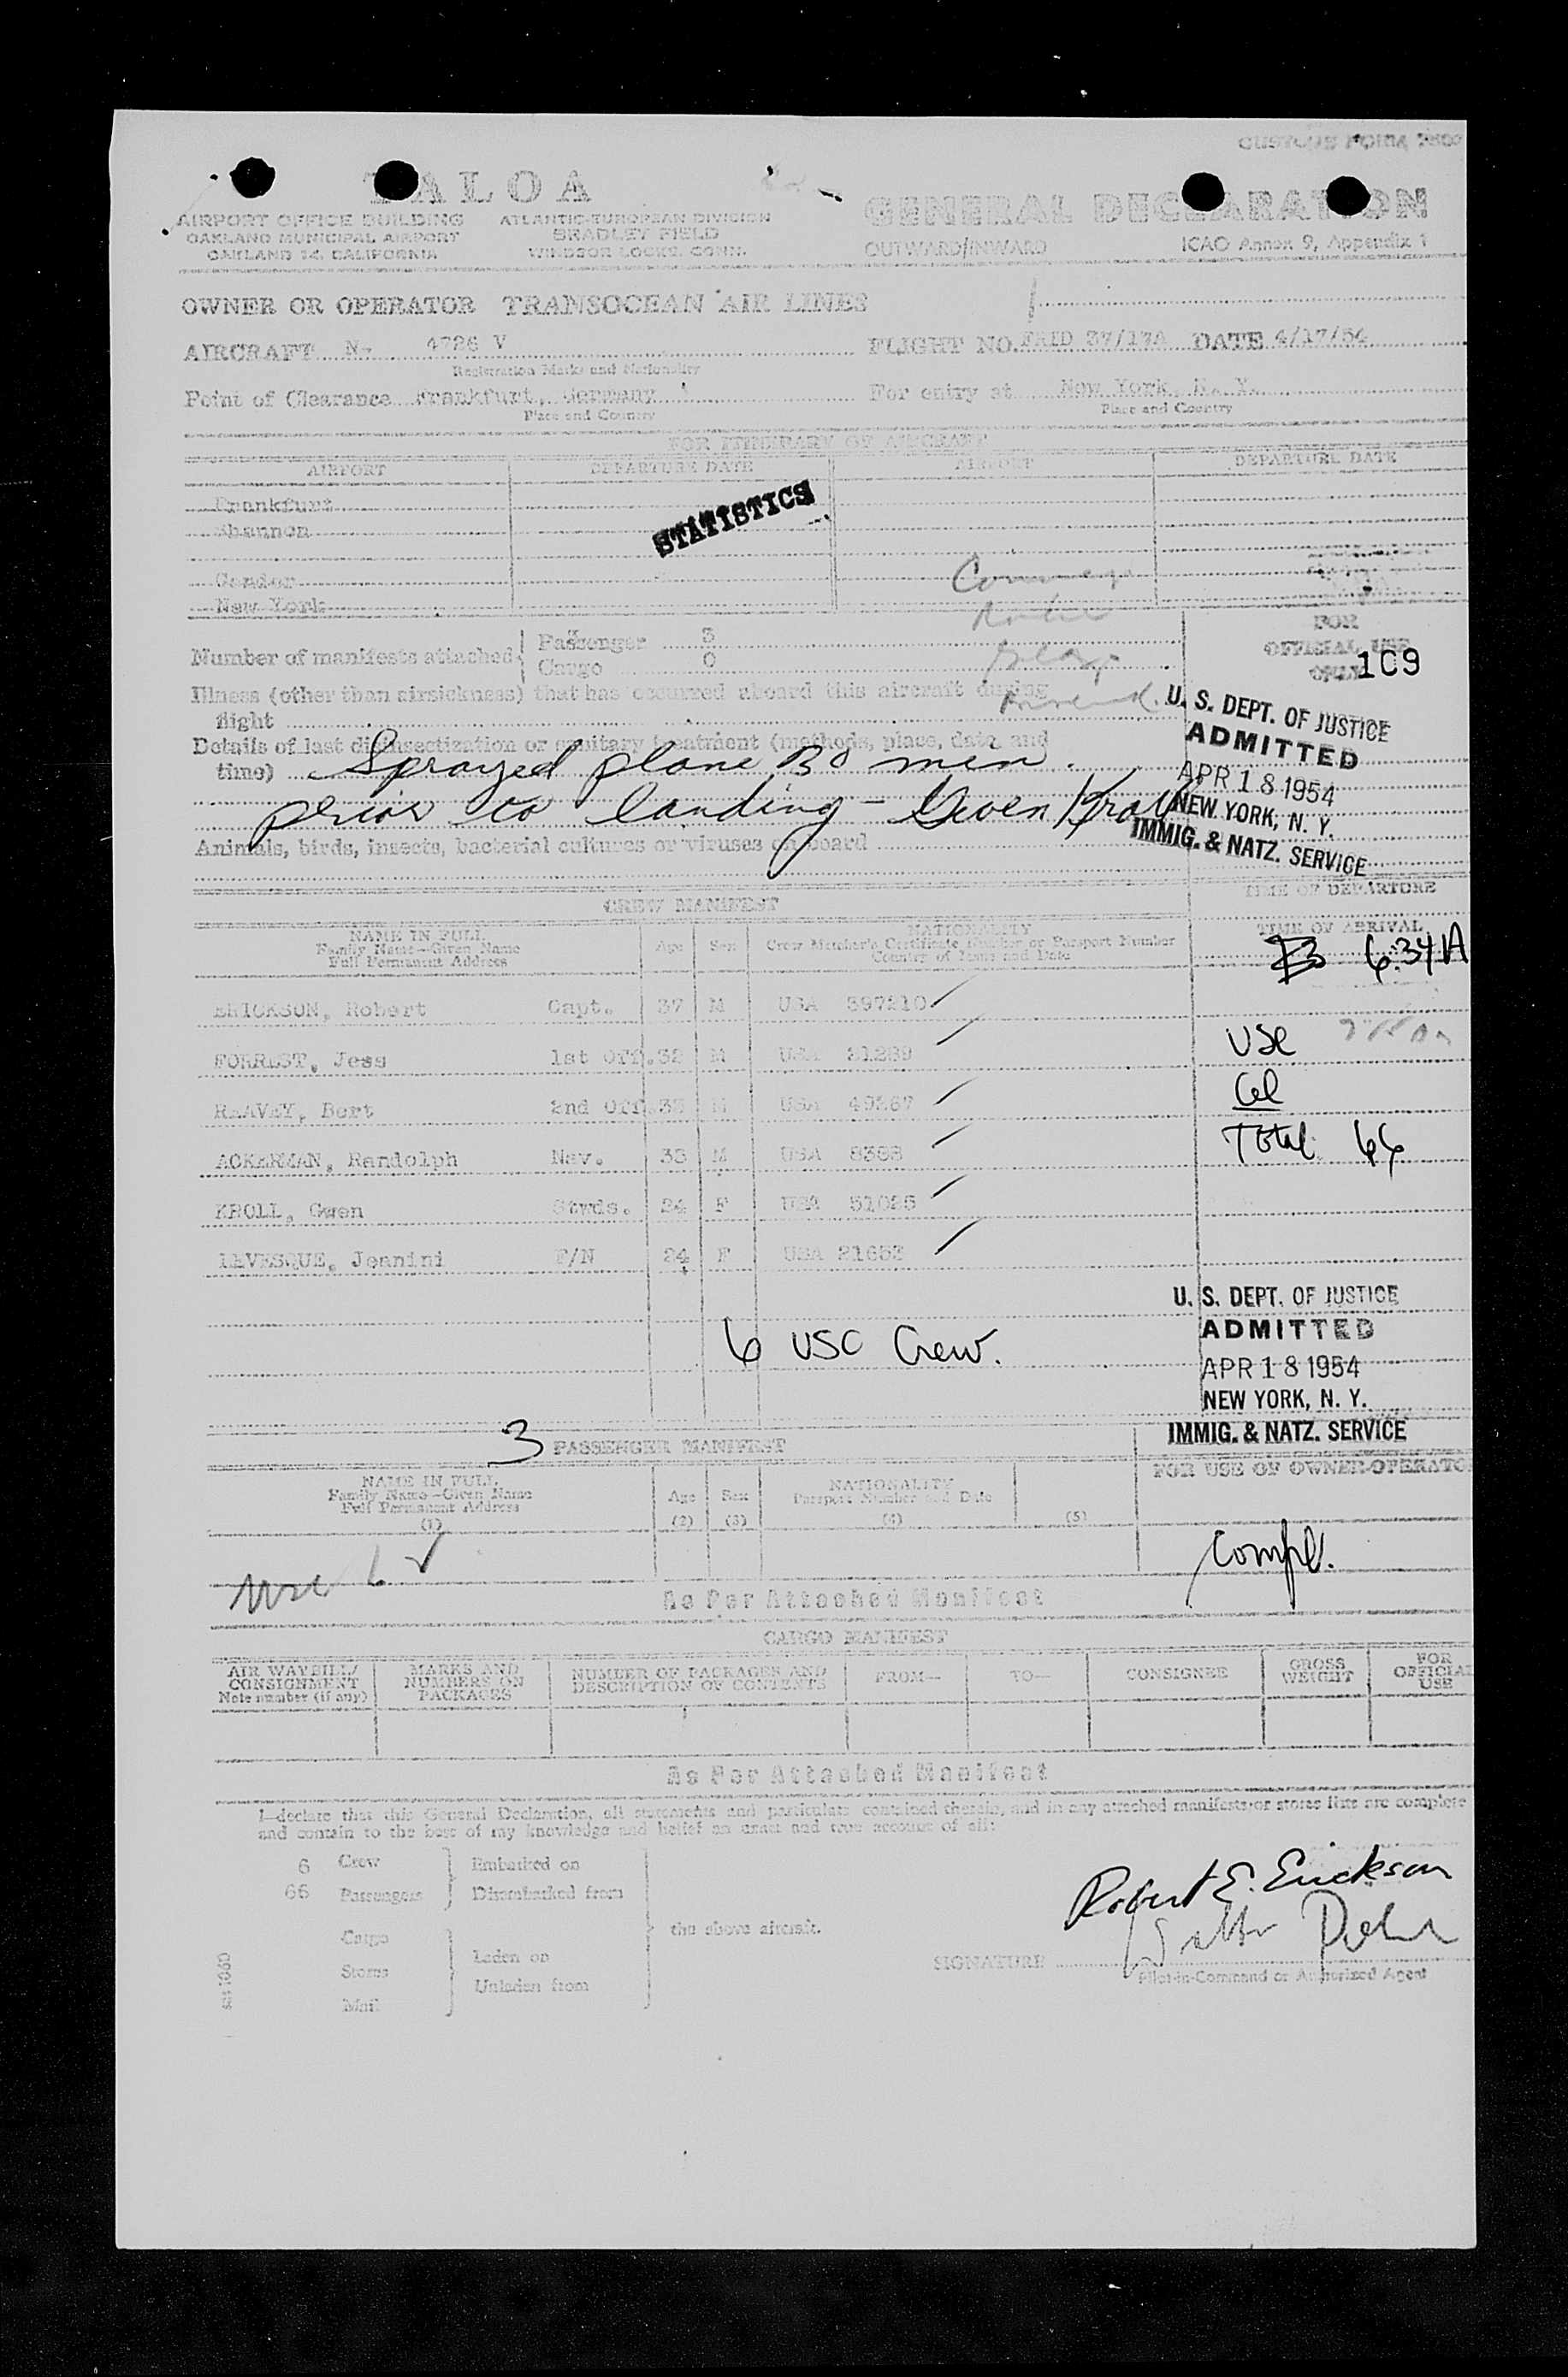 CUSTOMS FORM
TALOA
AIRPORT OFFICE BUILDING
OAKLAND MUNICIPAL AIRPORT
OAKLAND 14, CALIFORNIA
ATLANTIC-EUROPEAN DIVISION
BRADLEY FIELD
WINDSOR LOCKS, CONN.
GENERAL DECLARATION
OUTWARD/INWARD
ICAO Annex 9, Appendix 1
OWNER OR OPERATOR TRANSOCEAN AIR LINES
AIRCRAFT N- 4726 V
Registration Marks and Nationality
FLIGHT NO. 37/17A DATE 4/17/54
Point of Clearance Frankfurt, Germany
Place and Country
For entry at New York, N. Y.
Place and Country
FOR ITINERARY OF AIRCRAFT
AIRPORT DEPARTURE DATE AIRPORT DEPARTURE DATE
Frankfurt
Shannon
STATISTICS
Gander
New York
Number of manifests attached
Passenger 3
Cargo 0
FOR
OFFICIAL USE
ONLY
109
Illness (other than airsickness) that has occurred aboard this aircraft during
flight
Details of last disinsectization or sanitary treatment (methods, place, date and
time) Sprayed plane 30 min.
prior to landing - Gwen Kroll
Animals, birds, insects, bacterial cultures or viruses on board
U. S. DEPT. OF JUSTICE
ADMITTED
APR 18 1954
NEW YORK, N. Y.
IMMIG. & NATZ. SERVICE
TIME OF DEPARTURE
CREW MANIFEST
NAME IN FULL
Family Name—Given Name
Full Permanent Address
Age Sex
NATIONALITY
Crew Member's Certificate Number or Passport Number
Country of Issue and Date
TIME OF ARRIVAL
6:34A
ERICKSON, Robert Capt. 37 M USA 397210
FORREST, Jess 1st Off. 32 M USA 21289
REAVEY, Bert 2nd Off. 33 M USA 49267
ACKERMAN, Randolph Nav. 33 M USA 8388
KROLL, Gwen Stwds. 24 F USA 51025
LEVESQUE, Jeanini F/N 24 F USA 21653
USC
Cel
Total 66
6 USC Crew.
U. S. DEPT. OF JUSTICE
ADMITTED
APR 18 1954
NEW YORK, N. Y.
IMMIG. & NATZ. SERVICE
3 PASSENGER MANIFEST
FOR USE OF OWNER-OPERATOR
NAME IN FULL
Family Name—Given Name
Full Permanent Address
(1)
Age
(2)
Sex
(3)
NATIONALITY
Passport Number and Date
(4)
(5)
Compl.
As Per Attached Manifest
CARGO MANIFEST
AIR WAYBILL/
CONSIGNMENT
Note number (if any)
MARKS AND
NUMBERS ON
PACKAGES
NUMBER OF PACKAGES AND
DESCRIPTION OF CONTENTS
FROM—
TO—
CONSIGNEE
GROSS
WEIGHT
FOR
OFFICIAL
USE
As Per Attached Manifest
I declare that this General Declaration, all statements and particulars contained therein, and in any attached manifests or stores lists are complete
and contain to the best of my knowledge and belief an exact and true account of all:
6 Crew
66 Passengers
Embarked on
Disembarked from
Cargo
Stores
Mail
Laden on
Unladen from
the above aircraft.
Robert E. Erickson
SIGNATURE
Pilot-in-Command or Authorized Agent